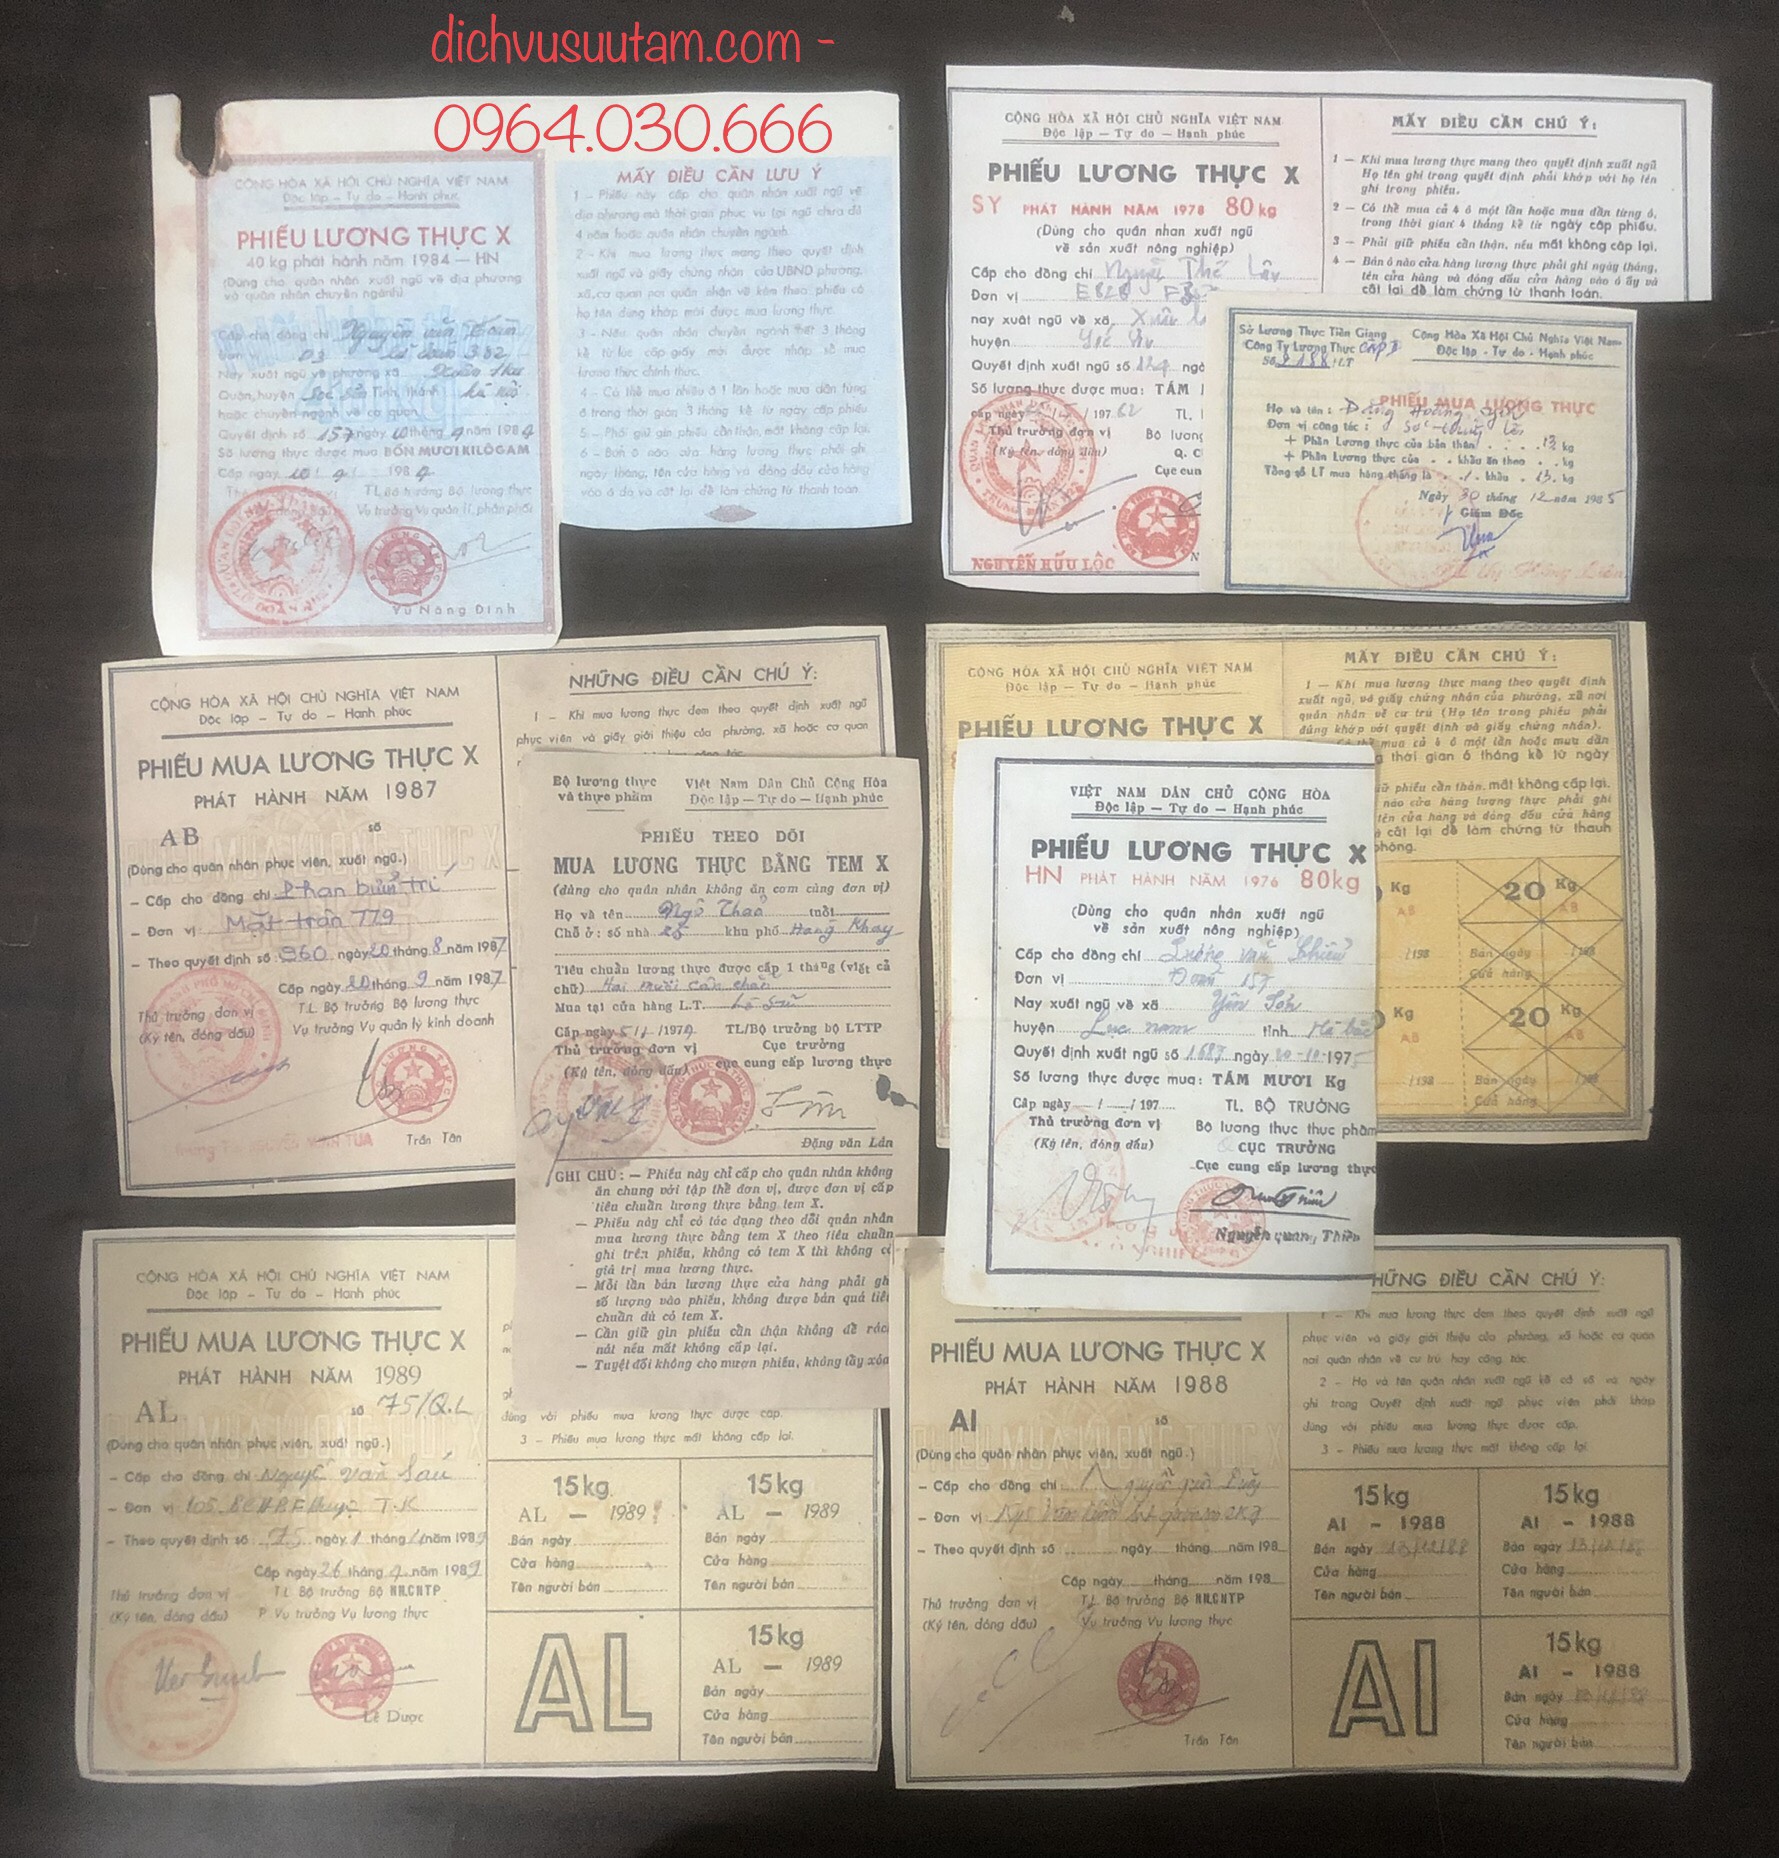 dichvusuutam.com -
0964.030.666
CỘNG HÒA XÃ HỘI CHỦ NGHĨA VIỆT NAM
Độc lập - Tự do - Hạnh phúc
PHIẾU LƯƠNG THỰC X
40 kg phát hành năm 1984 — HN
(Dùng cho quân nhân xuất ngũ về địa phương
và quân nhân chuyên ngành)
Cấp cho đồng chí Nguyễn Văn
Nay xuất ngũ về phường xã
Quận, huyện Sóc Sơn Tỉnh Thành Hà Nội
hoặc chuyên ngành về cơ quan
Quyết định số 157 ngày 10 tháng 9 năm 1984
Số lương thực được mua BỐN MƯƠI KILÔGAM
Cấp ngày 10 / 9 / 1984
TL Bộ trưởng Bộ lương thực
Vụ trưởng Vụ quản lí, phân phối
Vũ Năng Dinh
MẤY ĐIỀU CẦN LƯU Ý
1 — Phiếu này cấp cho quân nhân xuất ngũ về
địa phương mà thời gian phục vụ tại ngũ chưa đủ
4 năm hoặc quân nhân chuyên ngành.
2 — Khi mua lương thực mang theo quyết định
xuất ngũ và giấy chứng nhận của UBND phường,
xã, cơ quan nơi quân nhân về kèm theo phiếu có
họ tên đúng khớp mới được mua lương thực.
3 — Nếu quân nhân chuyên ngành thì 3 tháng
kể từ lúc cấp giấy mới được nhập sổ mua
lương thực chính thức.
4 — Có thể mua nhiều ô 1 lần hoặc mua dần từng
ô trong thời gian 3 tháng kể từ ngày cấp phiếu
5 — Phải giữ gìn phiếu cẩn thận, mất không cấp lại.
6 — Bán ô nào cửa hàng lương thực phải ghi
ngày tháng, tên cửa hàng và đóng dấu cửa hàng
vào ô đó và cắt lại để làm chứng từ thanh toán.
CỘNG HÒA XÃ HỘI CHỦ NGHĨA VIỆT NAM
Độc lập — Tự do — Hạnh phúc
PHIẾU LƯƠNG THỰC X
SY PHÁT HÀNH NĂM 1978 80kg
(Dùng cho quân nhan xuất ngũ
về sản xuất nông nghiệp)
Cấp cho đồng chí Nguyễn Thế
Đơn vị E828
nay xuất ngũ về xã Xuân
huyện
Quyết định xuất ngũ số
Số lương thực được mua: TÁM
cấp ngày / 197
TL.
Thủ trưởng đơn vị
Bộ lương
(Ký tên, đóng dấu)
Cục cun
NGUYỄN HỮU LỘC
MẤY ĐIỀU CẦN CHÚ Ý:
1 — Khi mua lương thực mang theo quyết định xuất ngũ
Họ tên ghi trong quyết định phải khớp với họ tên
ghi trong phiếu.
2 — Có thể mua cả 4 ô một lần hoặc mua dần từng ô,
trong thời gian 4 tháng kể từ ngày cấp phiếu.
3 — Phải giữ phiếu cẩn thận, nếu mất không cấp lại.
4 — Bán ô nào cửa hàng lương thực phải ghi ngày tháng,
tên cửa hàng và đóng dấu cửa hàng vào ô ấy và
cắt lại để làm chứng từ thanh toán.
Sở Lương Thực Tiền Giang
Công Ty Lương Thực CẤP I
Số 2188 /LT
Cộng Hòa Xã Hội Chủ Nghĩa Việt Nam
Độc lập - Tự do - Hạnh phúc
PHIẾU MUA LƯƠNG THỰC
Họ và tên : Đặng Hoàng
Đơn vị công tác :
+ Phần Lương thực của bản thân . . . . 13 kg
+ Phần Lương thực của . . khẩu ăn theo . . kg
Tổng số LT mua hàng tháng là . 1 . khẩu . 13 . kg
Ngày 30 tháng 12 năm 1985
Giám Đốc
CỘNG HÒA XÃ HỘI CHỦ NGHĨA VIỆT NAM
Độc lập - Tự do - Hạnh phúc
PHIẾU MUA LƯƠNG THỰC X
PHÁT HÀNH NĂM 1987
AB số
(Dùng cho quân nhân phục viên, xuất ngũ.)
- Cấp cho đồng chí Phan bửu trí
- Đơn vị Mặt trận 779
- Theo quyết định số 960 ngày 20 tháng 8 năm 1987
Cấp ngày 20 tháng 9 năm 1987
Thủ trưởng đơn vị
(Ký tên, đóng dấu)
T.L Bộ trưởng Bộ lương thực
Vụ trưởng Vụ quản lý kinh doanh
Trần Tôn
NHỮNG ĐIỀU CẦN CHÚ Ý:
1 — Khi mua lương thực đem theo quyết định xuất ngũ
phục viên và giấy giới thiệu của phường, xã hoặc cơ quan
Bộ lương thực
và thực phẩm
Việt Nam Dân Chủ Cộng Hòa
Độc lập — Tự do — Hạnh phúc
PHIẾU THEO DÕI
MUA LƯƠNG THỰC BẰNG TEM X
(dùng cho quân nhân không ăn cơm cùng đơn vị)
Họ và tên Ngô Thảo tuổi
Chỗ ở : số nhà 25 khu phố Hàng Khay
Tiêu chuẩn lương thực được cấp 1 tháng (viết cả
chữ) Hai mươi cân chẵn
Mua tại cửa hàng L.T.
Cấp ngày 5/1/1979
Thủ trưởng đơn vị
(Ký tên, đóng dấu)
TL/Bộ trưởng bộ LTTP
Cục trưởng
cục cung cấp lương thực
Đặng văn Lân
GHI CHÚ: — Phiếu này chỉ cấp cho quân nhân không
ăn chung với tập thể đơn vị, được đơn vị cấp
tiêu chuẩn lương thực bằng tem X.
— Phiếu này chỉ có tác dụng theo dõi quân nhân
mua lương thực bằng tem X theo tiêu chuẩn
ghi trên phiếu, không có tem X thì không có
giá trị mua lương thực.
— Mỗi lần bán lương thực cửa hàng phải gh
số lượng vào phiếu, không được bán quá tiê
chuẩn dù có tem X.
— Cần giữ gìn phiếu cẩn thận không để rác
nát nếu mất không cấp lại.
— Tuyệt đối không cho mượn phiếu, không tẩy xóa
CỘNG HÒA XÃ HỘI CHỦ NGHĨA VIỆT NAM
Độc lập — Tự do — Hạnh phúc
PHIẾU LƯƠNG THỰC X
MẤY ĐIỀU CẦN CHÚ Ý:
1 — Khi mua lương thực mang theo quyết định
xuất ngũ, và giấy chứng nhận của phường, xã nơi
quân nhân về cư trú (Họ tên trong phiếu phải
đúng khớp với quyết định và giấy chứng nhận).
thể mua cả 4 ô một lần hoặc mua dần
thời gian 6 tháng kể từ ngày
phiếu cẩn thận, mất không cấp lại.
nào cửa hàng lương thực phải ghi
tên cửa hàng và đóng dấu cửa hàng
cắt lại để làm chứng từ thanh
Kg 20 Kg
AB AB
/198 Bán ngày /198
Cửa hàng
Kg 20 Kg
AB AB
/198 Bán ngày /198
Cửa hàng
VIỆT NAM DÂN CHỦ CỘNG HÒA
Độc lập — Tự do — Hạnh phúc
PHIẾU LƯƠNG THỰC X
HN PHÁT HÀNH NĂM 1976 80kg
(Dùng cho quân nhân xuất ngũ
về sản xuất nông nghiệp)
Cấp cho đồng chí Lương văn
Đơn vị Đoàn 157
Nay xuất ngũ về xã Yên Sơn
huyện Lục nam tỉnh Hà bắc
Quyết định xuất ngũ số 1687 ngày 20-10-1975
Số lương thực được mua: TÁM MƯƠI Kg
Cấp ngày / /197
Thủ trưởng đơn vị
(Ký tên, đóng dấu)
TL. BỘ TRƯỞNG
Bộ lương thực thực phẩm
CỤC TRƯỞNG
Cục cung cấp lương thực
Nguyễn quang Thiều
CỘNG HÒA XÃ HỘI CHỦ NGHĨA VIỆT NAM
Độc lập - Tự do - Hạnh phúc
PHIẾU MUA LƯƠNG THỰC X
PHÁT HÀNH NĂM 1989
AL số 75/Q.L
(Dùng cho quân nhân phục viên, xuất ngũ.)
- Cấp cho đồng chí Nguyễn Văn Sáu
- Đơn vị T.K
- Theo quyết định số 75 ngày 1 tháng năm 1989
Cấp ngày 26 tháng 9 năm 1989
Thủ trưởng đơn vị
(Ký tên, đóng dấu)
T.L Bộ trưởng Bộ NN.CNTP
P Vụ trưởng Vụ lương thực
Lê Dược
dùng với phiếu mua lương thực được cấp.
3 — Phiếu mua lương thực mất không cấp lại.
15kg 15kg
AL — 1989 AL — 1989
Bán ngày Bán ngày
Cửa hàng Cửa hàng
Tên người bán Tên người bán
AL
15kg
AL — 1989
Bán ngày
Cửa hàng
Tên người bán
PHIẾU MUA LƯƠNG THỰC X
PHÁT HÀNH NĂM 1988
AI số
(Dùng cho quân nhân phục viên, xuất ngũ.)
- Cấp cho đồng chí
- Đơn vị
- Theo quyết định số ngày tháng năm 198
Cấp ngày tháng năm 198
Thủ trưởng đơn vị
(Ký tên, đóng dấu)
T.L Bộ trưởng Bộ NN.CNTP
Vụ trưởng Vụ lương thực
Trần Tôn
HỮNG ĐIỀU CẦN CHÚ Ý:
1 — Khi mua lương thực đem theo quyết định xuất ngũ
phục viên và giấy giới thiệu của phường, xã hoặc cơ quan
nơi quân nhân về cư trú hay công tác
2 — Họ và tên quân nhân xuất ngũ kể cả số và ngày
ghi trong Quyết định xuất ngũ phục viên phải khớp
đúng với phiếu mua lương thực được cấp.
3 — Phiếu mua lương thực mất không cấp lại
15kg 15kg
AI - 1988 AI - 1988
Bán ngày 13/12/88 Bán ngày 13/12/88
Cửa hàng Cửa hàng
Tên người bán Tên người bán
AI
15kg
AI - 1988
Bán ngày
Cửa hàng
Tên người bán